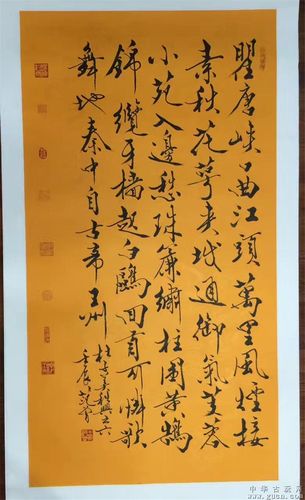 瞿唐峽口曲江頭萬里風煙接
素秋花萼夾城通御氣芙蓉
小苑入邊愁珠簾繡柱圍黃鵠
錦纜牙檣起白鷗回首可憐歌
舞地秦中自古帝王州
秋興之六
壬辰
中华古玩网
www.gucn.com